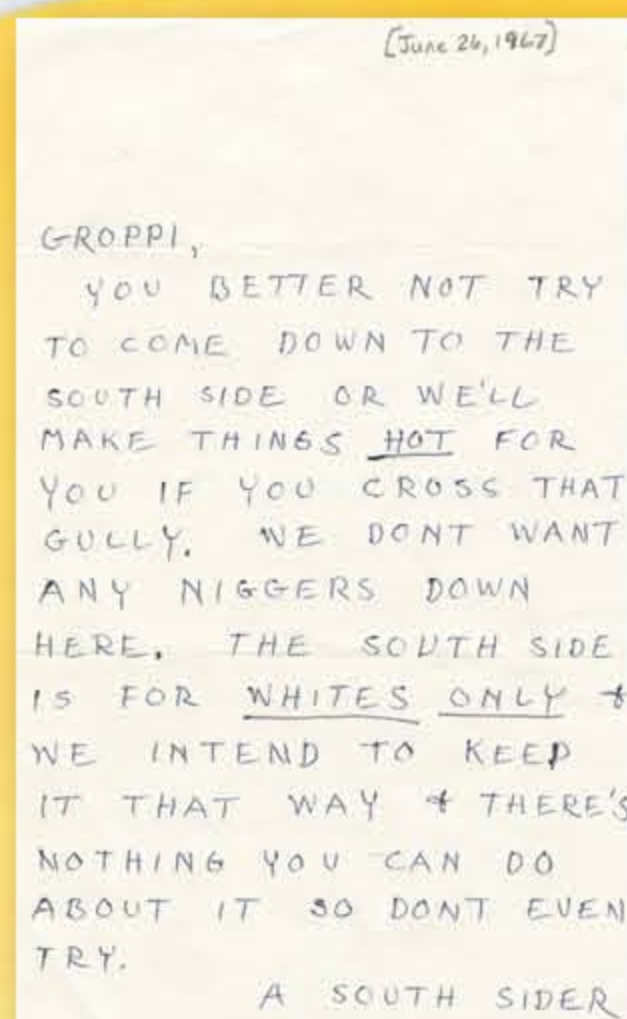 [June 26, 1967]
GROPPI,
YOU BETTER NOT TRY
TO COME DOWN TO THE
SOUTH SIDE OR WE'LL
MAKE THINGS HOT FOR
YOU IF YOU CROSS THAT
GULLY. WE DONT WANT
ANY NIGGERS DOWN
HERE. THE SOUTH SIDE
IS FOR WHITES ONLY &
WE INTEND TO KEEP
IT THAT WAY & THERE'S
NOTHING YOU CAN DO
ABOUT IT SO DONT EVEN
TRY.
A SOUTH SIDER